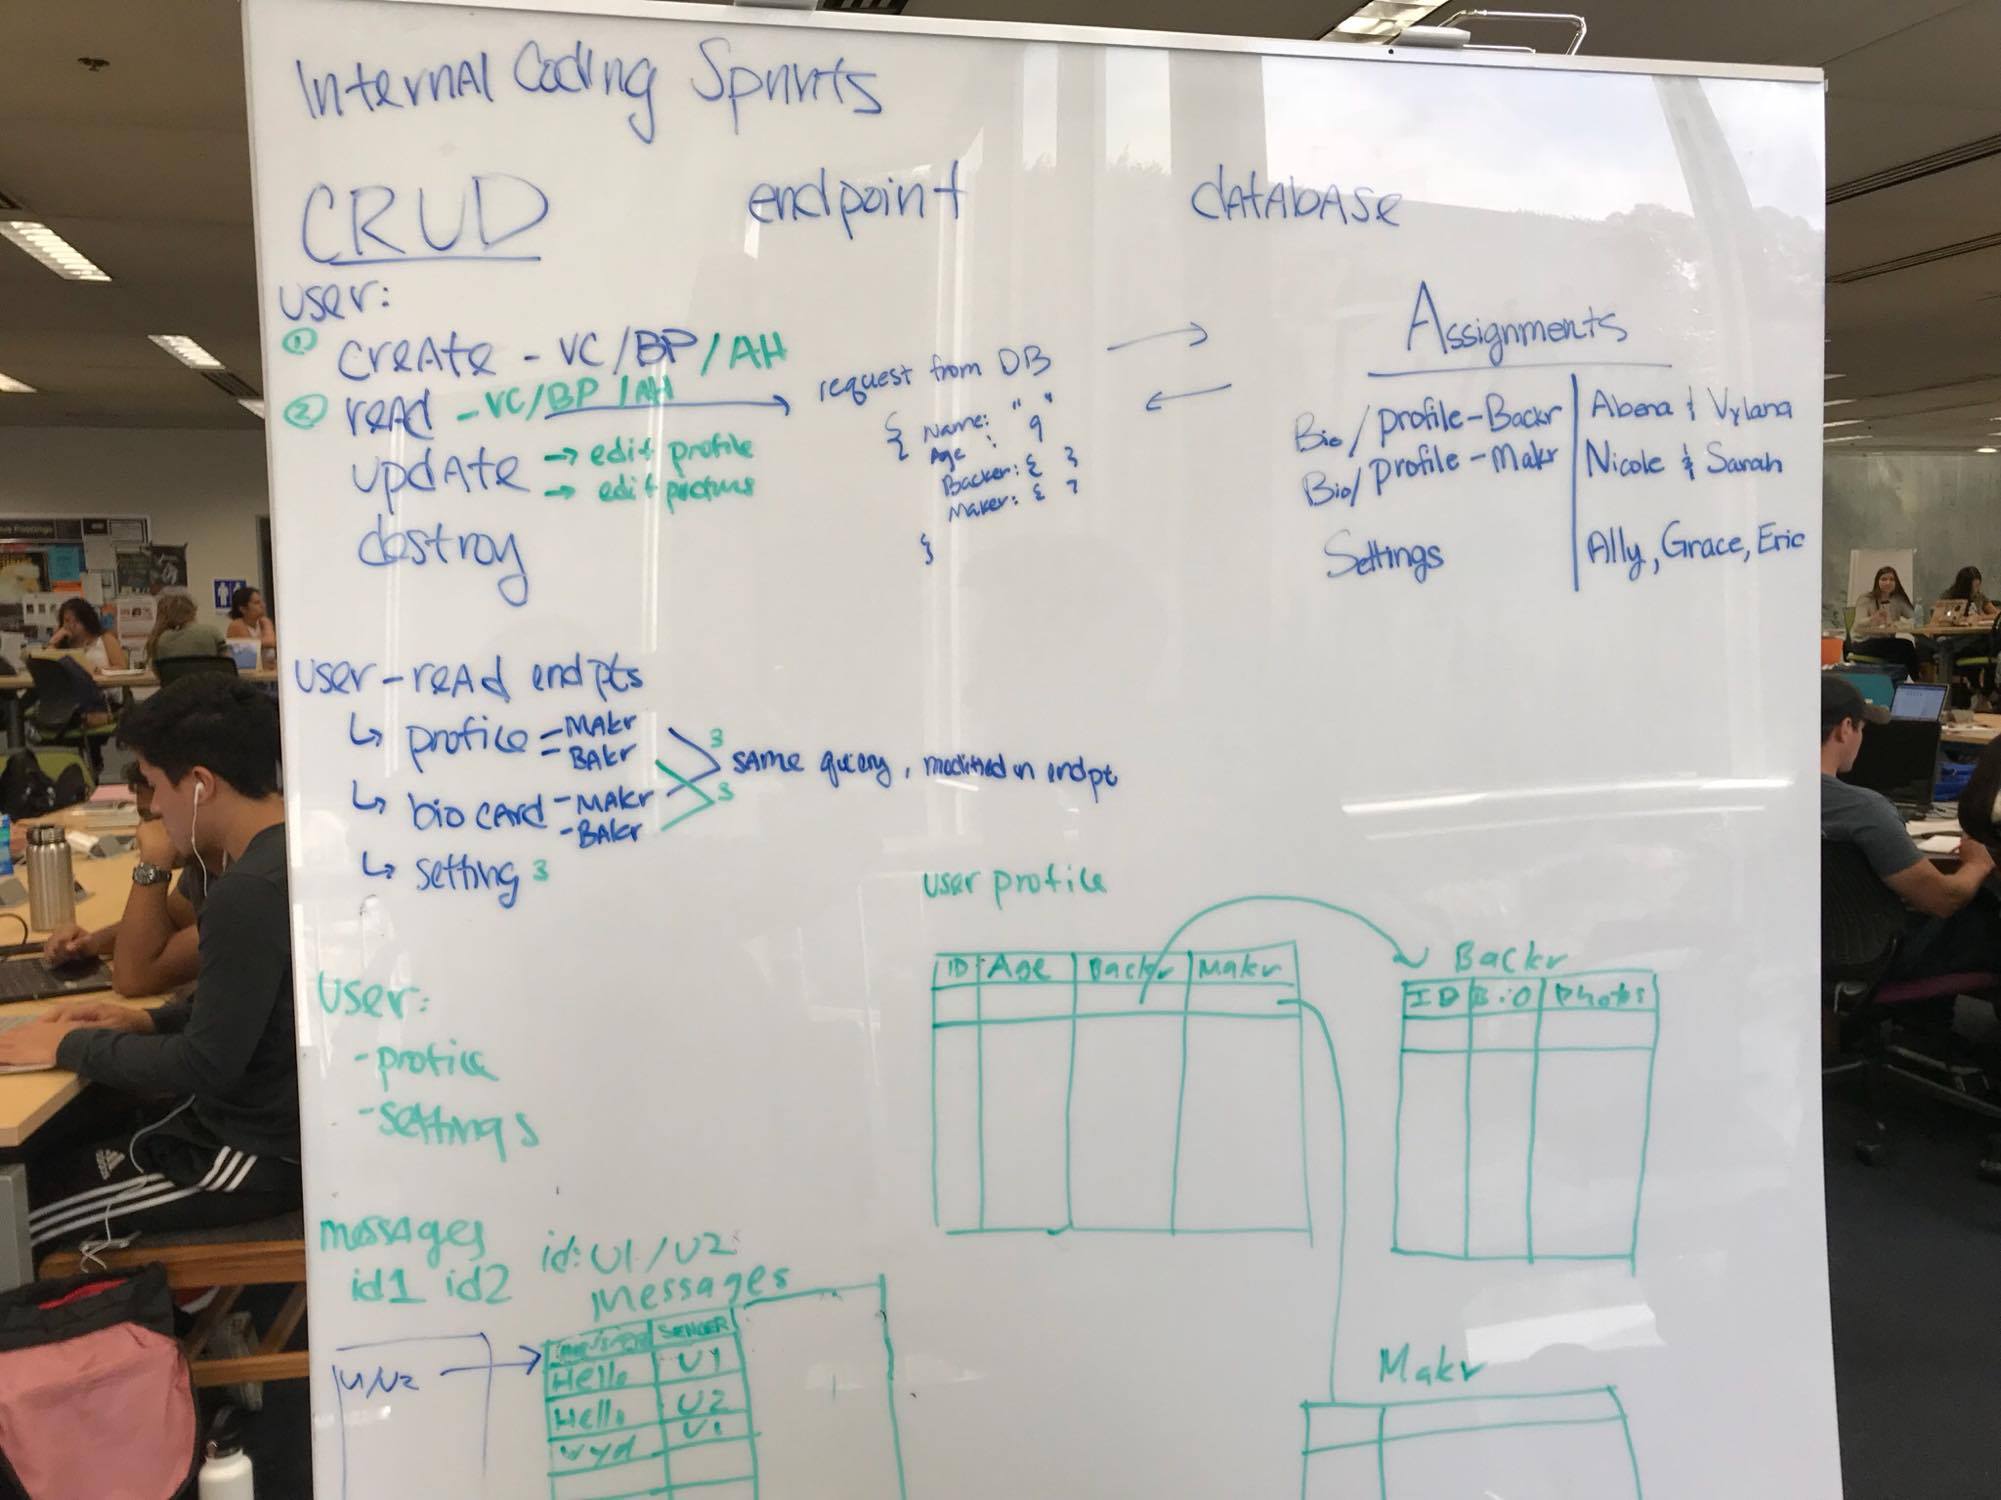 InternAl Coding Sprints
CRUD
endpoint
dAtAbASe
user:
① CreAte - VC/BP/AH
② reAd - VC/BP/AH
update → edit profile
→ edit pictures
destroy
request from DB
{ Name: " "
Age : 9
Backer: { }
Maker: { }
}
Assignments
Bio/profile-Backr | Abena & Vylana
Bio/profile-Makr | Nicole & Sarah
Settings | Ally, Grace, Eric
user-reAd endpts
↳ profile - MAkr
- BAkr
↳ bio cArd - MAkr
- BAkr
↳ setting 3
3
3
sAme query, modified in endpt
user:
- profile
- settings
user profile
ID Age Backr Makr
Backr
ID Bio Photos
Makr
messAges
id1 id2
id: U1/U2
Messages
SENDER
Hello U1
Hello U2
wyd U1
U1/U2